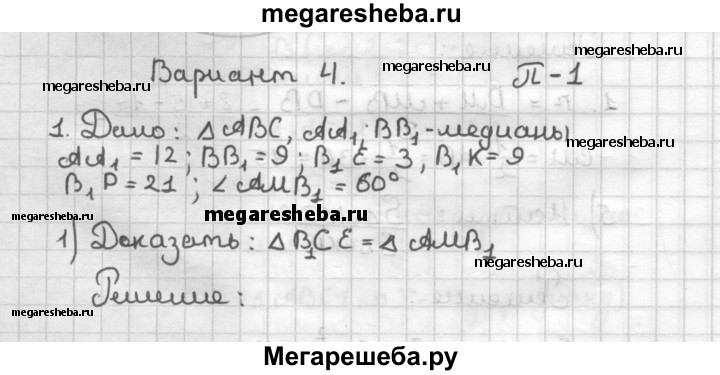 megaresheba.ru
megaresheba.ru
Вариант 4. megaresheba.ru П-1
megaresheba.ru megaresheba.ru
1. Дано: △ABC, AA₁; BB₁-медианы megaresheba.ru
AA₁ = 12; BB₁ = 9; B₁E = 3, B₁K = 9
B₁P = 21; ∠AMB₁ = 60°
megaresheba.ru megaresheba.ru
1) Доказать: △B₁CE = △AMB₁
megaresheba.ru
Решение:
megaresheba.ru megaresheba.ru
Мегарешеба.ру